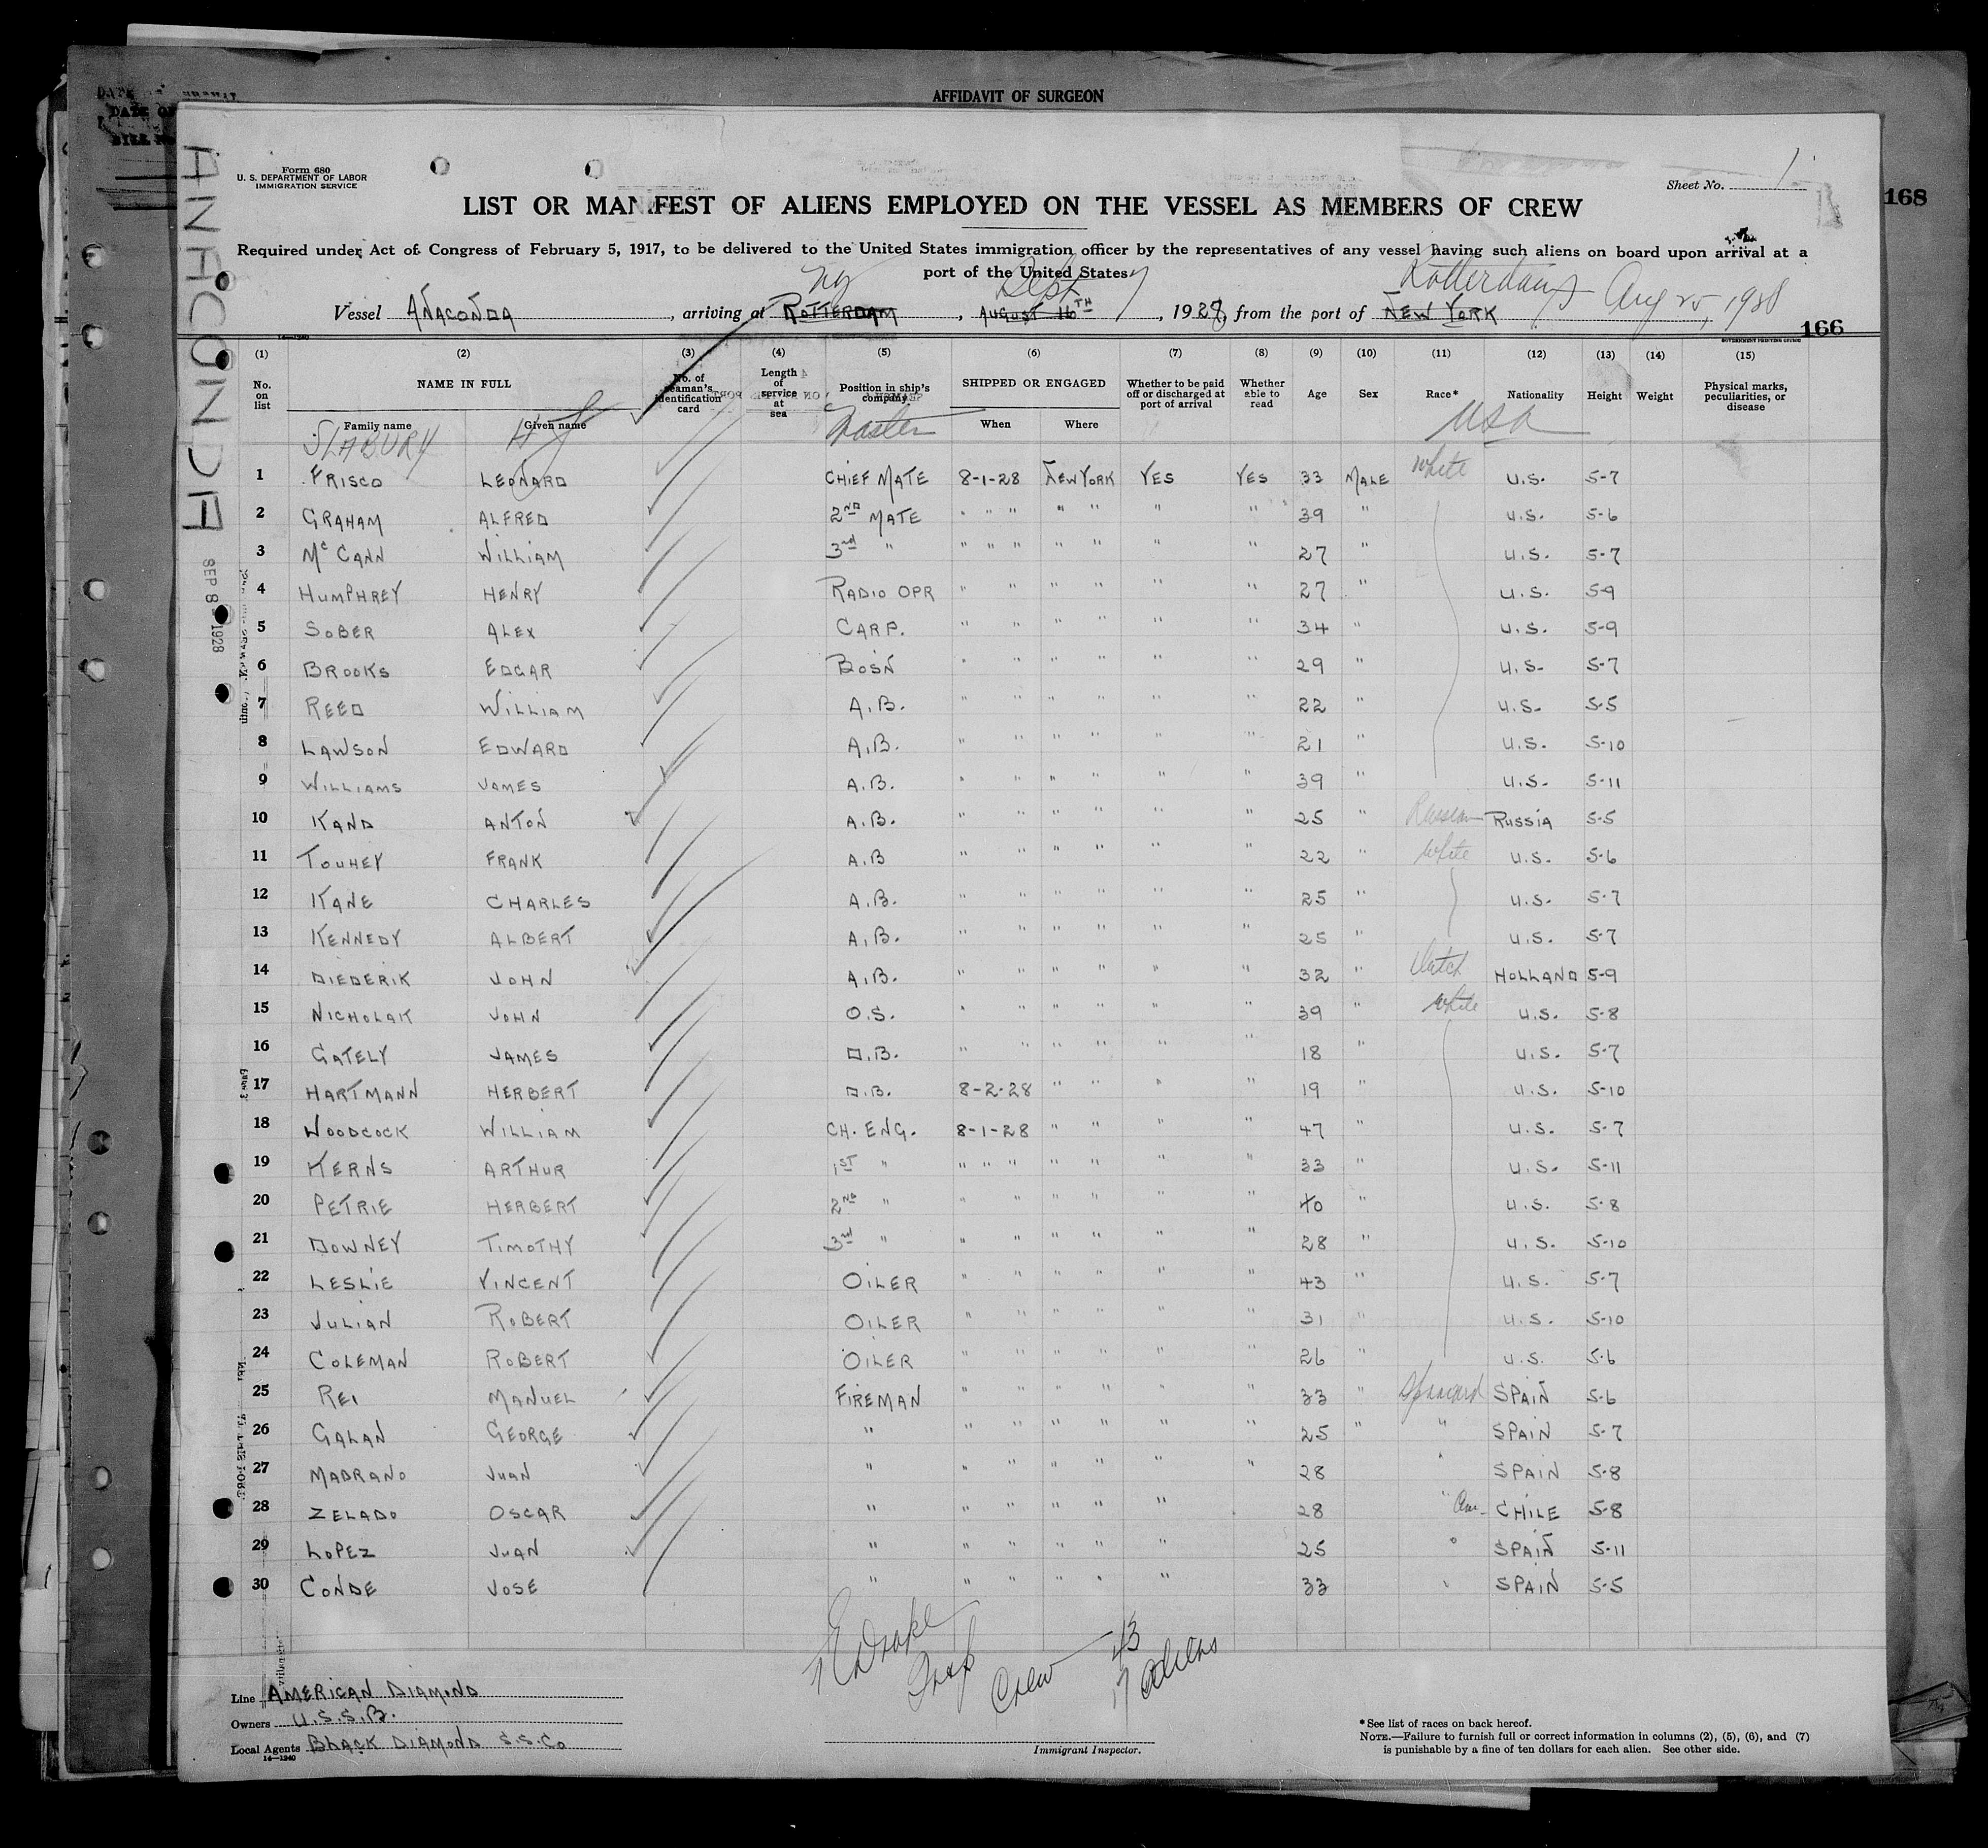 AFFIDAVIT OF SURGEON
ANACONDA
SEP 8 1928
Form 680
U. S. DEPARTMENT OF LABOR
IMMIGRATION SERVICE
Sheet No. 1
168
LIST OR MANIFEST OF ALIENS EMPLOYED ON THE VESSEL AS MEMBERS OF CREW
Required under Act of Congress of February 5, 1917, to be delivered to the United States immigration officer by the representatives of any vessel having such aliens on board upon arrival at a
port of the United States
NY Sept 7 Rotterdam Aug 25, 1928
Vessel ANACONDA, arriving at ROTTERDAM, AUGUST 16TH, 1928, from the port of NEW YORK
166
14—1240 GOVERNMENT PRINTING OFFICE
(1) (2) (3) (4) (5) (6) (7) (8) (9) (10) (11) (12) (13) (14) (15)
No. on list NAME IN FULL No. of seaman's identification card Length of service at sea Position in ship's company SHIPPED OR ENGAGED Whether to be paid off or discharged at port of arrival Whether able to read Age Sex Race* Nationality Height Weight Physical marks, peculiarities, or disease
Family name Given name When Where
SLABURY Master USA
1 FRISCO LEONARD CHIEF MATE 8-1-28 NEW YORK YES YES 33 MALE White U.S. 5-7
2 GRAHAM ALFRED 2ND MATE " " " " " " " 39 " U.S. 5-6
3 McCANN WILLIAM 3rd " " " " " " " " 27 " U.S. 5-7
4 HUMPHREY HENRY RADIO OPR " " " " " " 27 " U.S. 5-9
5 SOBER ALEX CARP. " " " " " " 34 " U.S. 5-9
6 BROOKS EDGAR BOSN " " " " " " 29 " U.S. 5-7
7 REED WILLIAM A.B. " " " " " " 22 " U.S. 5-5
8 LAWSON EDWARD A.B. " " " " " " 21 " U.S. 5-10
9 WILLIAMS JAMES A.B. " " " " " " 39 " U.S. 5-11
10 KAND ANTON A.B. " " " " " " 25 " Russian RUSSIA 5-5
11 TOUHEY FRANK A.B " " " " " " 22 " White U.S. 5-6
12 KANE CHARLES A.B. " " " " " " 25 " U.S. 5-7
13 KENNEDY ALBERT A.B. " " " " " " 25 " U.S. 5-7
14 DIEDERIK JOHN A.B. " " " " " " 32 " Dutch HOLLAND 5-9
15 NICHOLAK JOHN O.S. " " " " " " 39 " White U.S. 5-8
16 GATELY JAMES O.B. " " " " " " 18 " U.S. 5-7
17 HARTMANN HERBERT O.B. 8-2-28 " " " " 19 " U.S. 5-10
18 WOODCOCK WILLIAM CH. ENG. 8-1-28 " " " " 47 " U.S. 5-7
19 KERNS ARTHUR 1ST " " " " " " " " 33 " U.S. 5-11
20 PETRIE HERBERT 2ND " " " " " " " 40 " U.S. 5-8
21 DOWNEY TIMOTHY 3rd " " " " " " " 28 " U.S. 5-10
22 LESLIE VINCENT OILER " " " " " " 43 " U.S. 5-7
23 JULIAN ROBERT OILER " " " " " " 31 " U.S. 5-10
24 COLEMAN ROBERT OILER " " " " " " 26 " U.S. 5-6
25 REI MANUEL FIREMAN " " " " " " 33 " Spaniard SPAIN 5-6
26 GALAN GEORGE " " " " " " " 25 " " SPAIN 5-7
27 MADRANO JUAN " " " " " " " 28 " SPAIN 5-8
28 ZELADO OSCAR " " " " " " 28 " Am CHILE 5-8
29 LOPEZ JUAN " " " " " " 25 " SPAIN 5-11
30 CONDE JOSE " " " " " " 33 " SPAIN 5-5
Drake
Insp
Crew 43
17 aliens
Line AMERICAN DIAMOND
Owners U.S.S.B.
Local Agents BLACK DIAMOND S.S.Co
14—1240
Immigrant Inspector.
*See list of races on back hereof.
NOTE.—Failure to furnish full or correct information in columns (2), (5), (6), and (7)
is punishable by a fine of ten dollars for each alien. See other side.